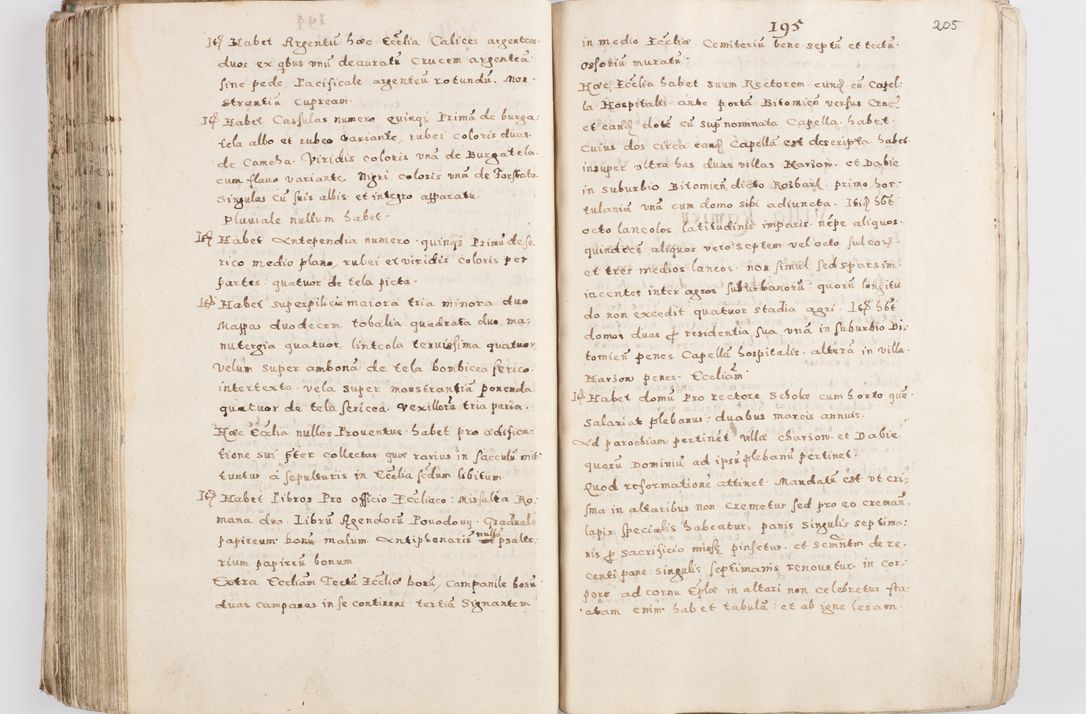 Itẽ Habet Argentũ hæc Ecclia Calices argenteos
duos ex qbus unũ deauratũ Crucem argenteã
sine pede, Pacificale argenteũ rotundũ. Mon-
strantiã Cupream.
Itẽ Habet Cassulas numero quinqȝ Primã de burga-
tela albo et rubeo variante, rubei coloris duas
de Camcha. Viridis coloris unã de Burgatela
cum flauo variante. Nigri coloris unã de Forstato
Singulas cũ suis albis et integro apparatu.
Pluuiale nullum habet.
Itẽ Habet Antependia numero quinqȝ Primũ de se-
rico medio plano, rubei et viridis coloris per
partes quatuor de tela picta.
Itẽ Habet superpilicia maiora tria minora duo
Mappas duodecem tobalia quadrata duo, ma-
nutergia quatuor linteola tenuissima quatuor
Velum super ambonã de tela bombicea serico
intertexta. vela super monstrantiã ponenda
quatuor de tela sericea. Vexillorũ tria paria.
Hæc Ecclia nullos Prouentus habet pro ædifica-
tione sui pter collectas quæ rarius in sacculũ mit-
tuntur a sepulturis in Ecclia scdum libitum.
Itẽ Habet Libros Pro officio Eccliaco: Missalia Ro-
mana duo. Librũ Agendorũ Pouodouy. Graduale
papireum bonũ malum. Antiphonariũ nullũ psalte-
rium papireũ bonum
Extra Eccliam Tectũ Eccliæ bonũ, campanile bonũ
duas campanas in se continens tertiã Signantem
195
205
in medio Eccliæ Cemiteriũ bene septũ et tectũ.
Ossoriũ muratũ.
Hæc Ecclia habet suum Rectorem eundẽ cũ Capel-
la Hospitalis ante portã Bitomieñ versus Crac.
et eandẽ dotẽ cũ supnominata Capella habet
Cuius dos circa eandẽ Capellã est descripta habet
insuper ultra has duas villas Karson et Dabie
in suburbio Bitomieñ, dicto Rosbark primo hor-
tulaniã unã cum domo sibi adiuncta. Itẽ hẽt
octo lancolos latitudinis imparis nẽpe aliquos
quindecẽ aliquos vero septem vel octo sulcorũ
et tres medios lancos non simul sed sparsim
iacentes inter agros suburbanorũ quorũ longitu
do non excedit quatuor stadia agri. Itẽ hẽt
domos duas p residentia sua unã in suburbio Bi-
tomieñ penes Capellã hospitalis altera in villa
Karson penes Eccliam
Itẽ Habet domũ Pro rectore Scholæ cum horto quẽ
salariat plebanus duabus marcis annuis.
Ad parochiam pertinẽt villæ charson et Dabie
quorũ Dominiũ ad ipsũ plebanũ pertinet.
Quod reformationẽ attinet Mandatũ est ut cri-
sma in altaribus non cremetur sed pro eo cremañ.
lapis specialis habentur, panis singulis septima-
nis p sacrificio missæ pinsetur et Scmntm de re-
centi pane singulis septimanis renouetur in cor-
pore ad cornu Eplæ in altari non celebretur sta-
atam enim habet tabulã et ab igne lesam